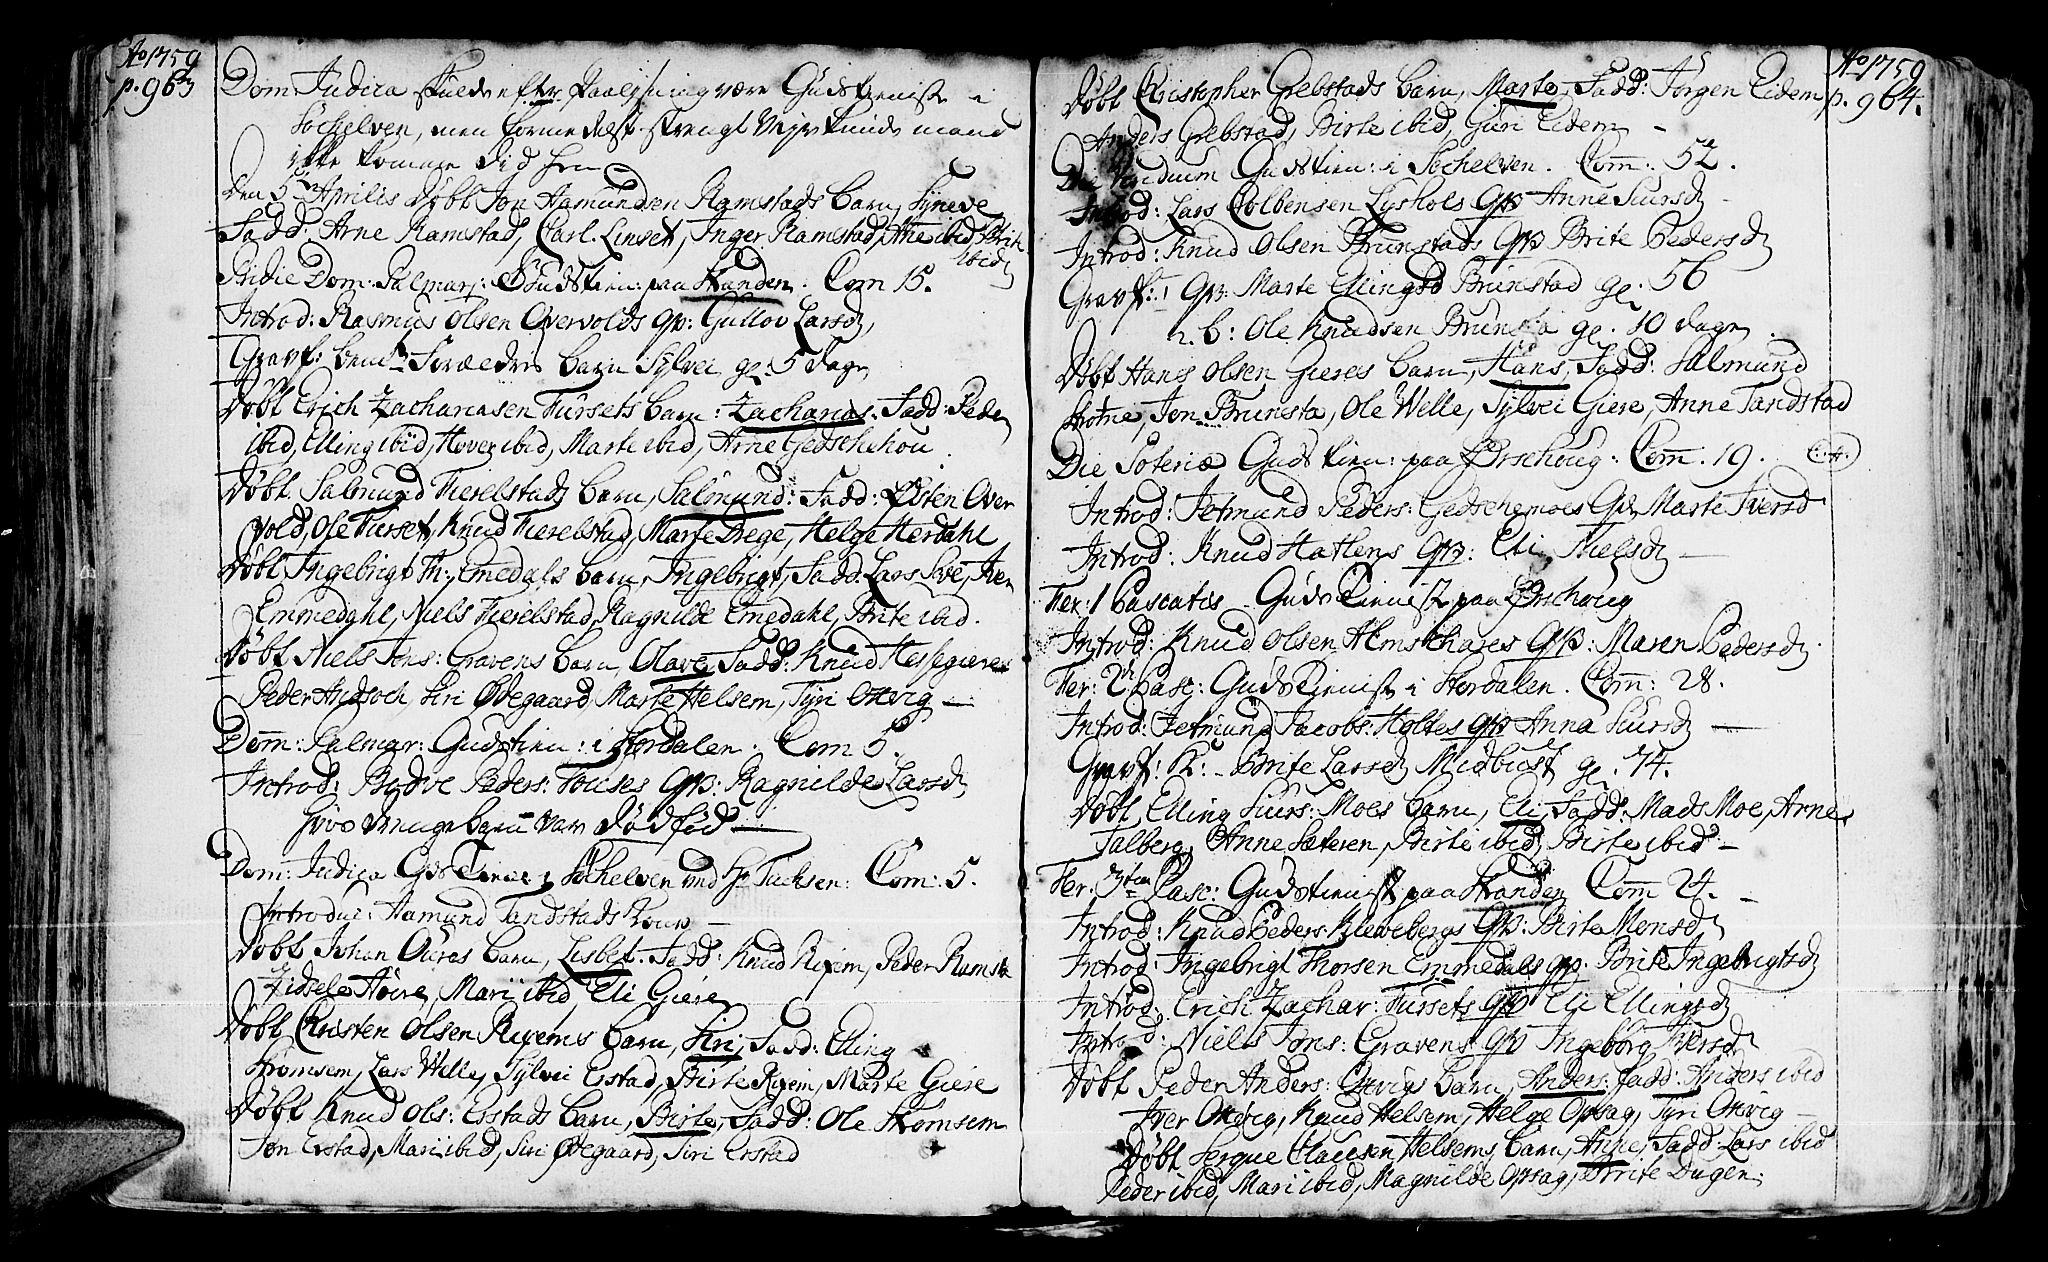 Ao 1759
p. 963
Dom Judica skulde efter paalysning være Gudstieniste i
Søchelven, men formedelst strengt Vejr kunde mand
ikke komme did hen
Den 5te Aprilis Døbt Jon Aamundsen Ramstads barn, Syneve
Fadd: Arne Ramstad, Carl Linset, Inger Ramstad, Anne ibid Brite
ibid
Pridie Dom: Palmar: Gudstien: paa Stranden. Com 15.
Introd: Rasmus Olsen Overvolds qv: Gullov Larsd
Gravf: barn Sylvei gl: 5 dage
Døbt Erich Zachariasen Tursets barn: Zacharias. Fadd: Peder
ibid, Elling ibid, Hover ibid, Marte ibid, Arne
Døbt. Salmund Fierelstads barn, Salmund: Fadd: Østen Over
vold, Ole Turset, Knud Fierelstad, Marte Drege, Helge Herdahl
Døbt Ingebrigt Th: Emedals barn, Ingebrigt, Fadd: Lars Sve, Iver
Emmedahl, Niels Fierelstad, Ragnilde Emedahl, Brite ibid.
Døbt Niels Jons: Gravens barn, Olave, Fadd: Knud
Peder, Siri Ødegaard, Marte Helsem, Tyri Otvig
Dom: Palmar: Gudstien: i Stordalen. Com 5.
Introd: Peders: qv: Ragnilde Larsd
hvis barn var dødfød
Dom: Judica Gudstien: i Søchelven ved Hr Tuchsen: Com: 5.
Introduc: Aamund Tandstads
Døbt Johan Ouras barn, Lisbet. Fadd: Knud Rixem, Peder Ramsta
Zidsele Høire, Mari ibid, Eli Giere
Døbt Christen Olsen Rixems barn, Siri, Fadd: Elling
Strømsem, Lars Welle, Sylvei Erstad, Birte Rixem, Marte Giere
Døbt Knud Ols: Erstads barn, Birte, Fadd: Ole Strømsem
Jon Erstad, Mari ibid, Siri Ødegaard, Siri Erstad
Ao 1759
p. 964.
Døbt Christopher Grebstads barn, Marte, Fadd: Jørgen Eidem
Anders Grebstad, Birte ibid, Guri Eidem
Die Viridium Gudstien: i Søchelven. Com: 52.
Introd: Lars Colbensen Lyshols qv Anne Siursd
Introd: Knud Olsen Brunstads qv Brite Pedersd
Gravf: 1 qv: Marte Ellingsd Brunstad gl. 56
2. b: Ole Knudsen Brunsta gl. 10 dage
Døbt Hans Olsen Gieres barn, Hans, Fadd: Salmund
Jon Brunsta, Ole Welle, Sylvei Giere, Anne Tandstad
Die Soteriæ Gudstien: paa Ørschoug: Com. 19.
Introd: Jetmund Peders: qv Marte Iversd
Introd: Knud Hatlens qv: Eli Nielsd
Fer: 1 Pascatis Gudstieniste paa Ørschoug
Introd: Knud Olsen qv: Maren Pedersd
Fer: 2 Pasc: Gudstieniste i Stordalen. Com: 28.
Introd: Jetmund Jacobs: Holtes qv Anna Siursd
Gravf: K: Brite Larsd Midbust gl. 74.
Døbt Elling Siurs: Moes barn, Eli, Fadd: Mads Moe, Arne
Talberg, Anne Sæteren, Birte ibid, Birte ibid
Fer. 3tia Pasc: Gudstieniste paa Stranden Com 24.
Introd: Knud Peders: Klewebergs qv: Birte Monsd
Introd: Ingebrigt Thorsen Emmedals qv. Brite Ingebrigtsd
Introd: Erich Zachar: Tursets qv Eli Ellingsd
Introd: Niels Jons: Gravens qv Ingeborg Iversd
Døbt Peder Anders: Otvigs barn, Anders, Fadd: Anders ibid
Iver Otvig, Knud Helsem, Helge Opsag, Tyri Otvig
Døbt Clausen Helsems barn, Anne, Fadd: Lars ibid
Peder ibid, Mari ibid, Magnilde Opsag, Brite Dugen